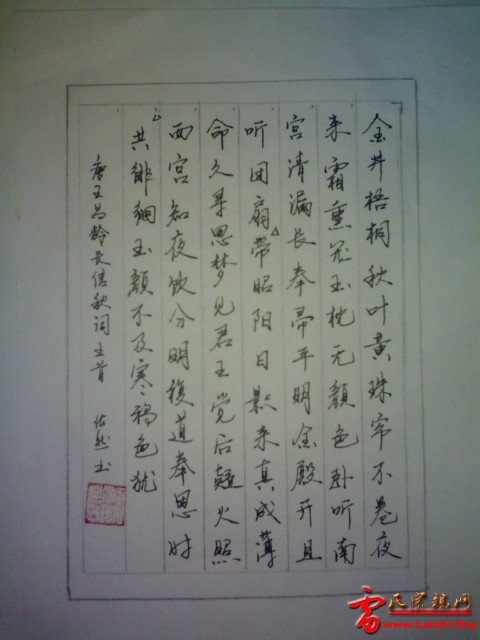 金井梧桐秋叶黄珠帘不卷夜
来霜熏笼玉枕无顔色卧听南
宫清漏长奉帚平明金殿开且
听团扇带昭阳日影来真成薄
命久寻思梦见君王觉后疑火照
西宫知夜饮分明複道奉恩时
共徘徊玉顔不及寒鸦色犹
唐王昌龄长信秋词三首 书
雷氏宗親网
www.Leishi.Org